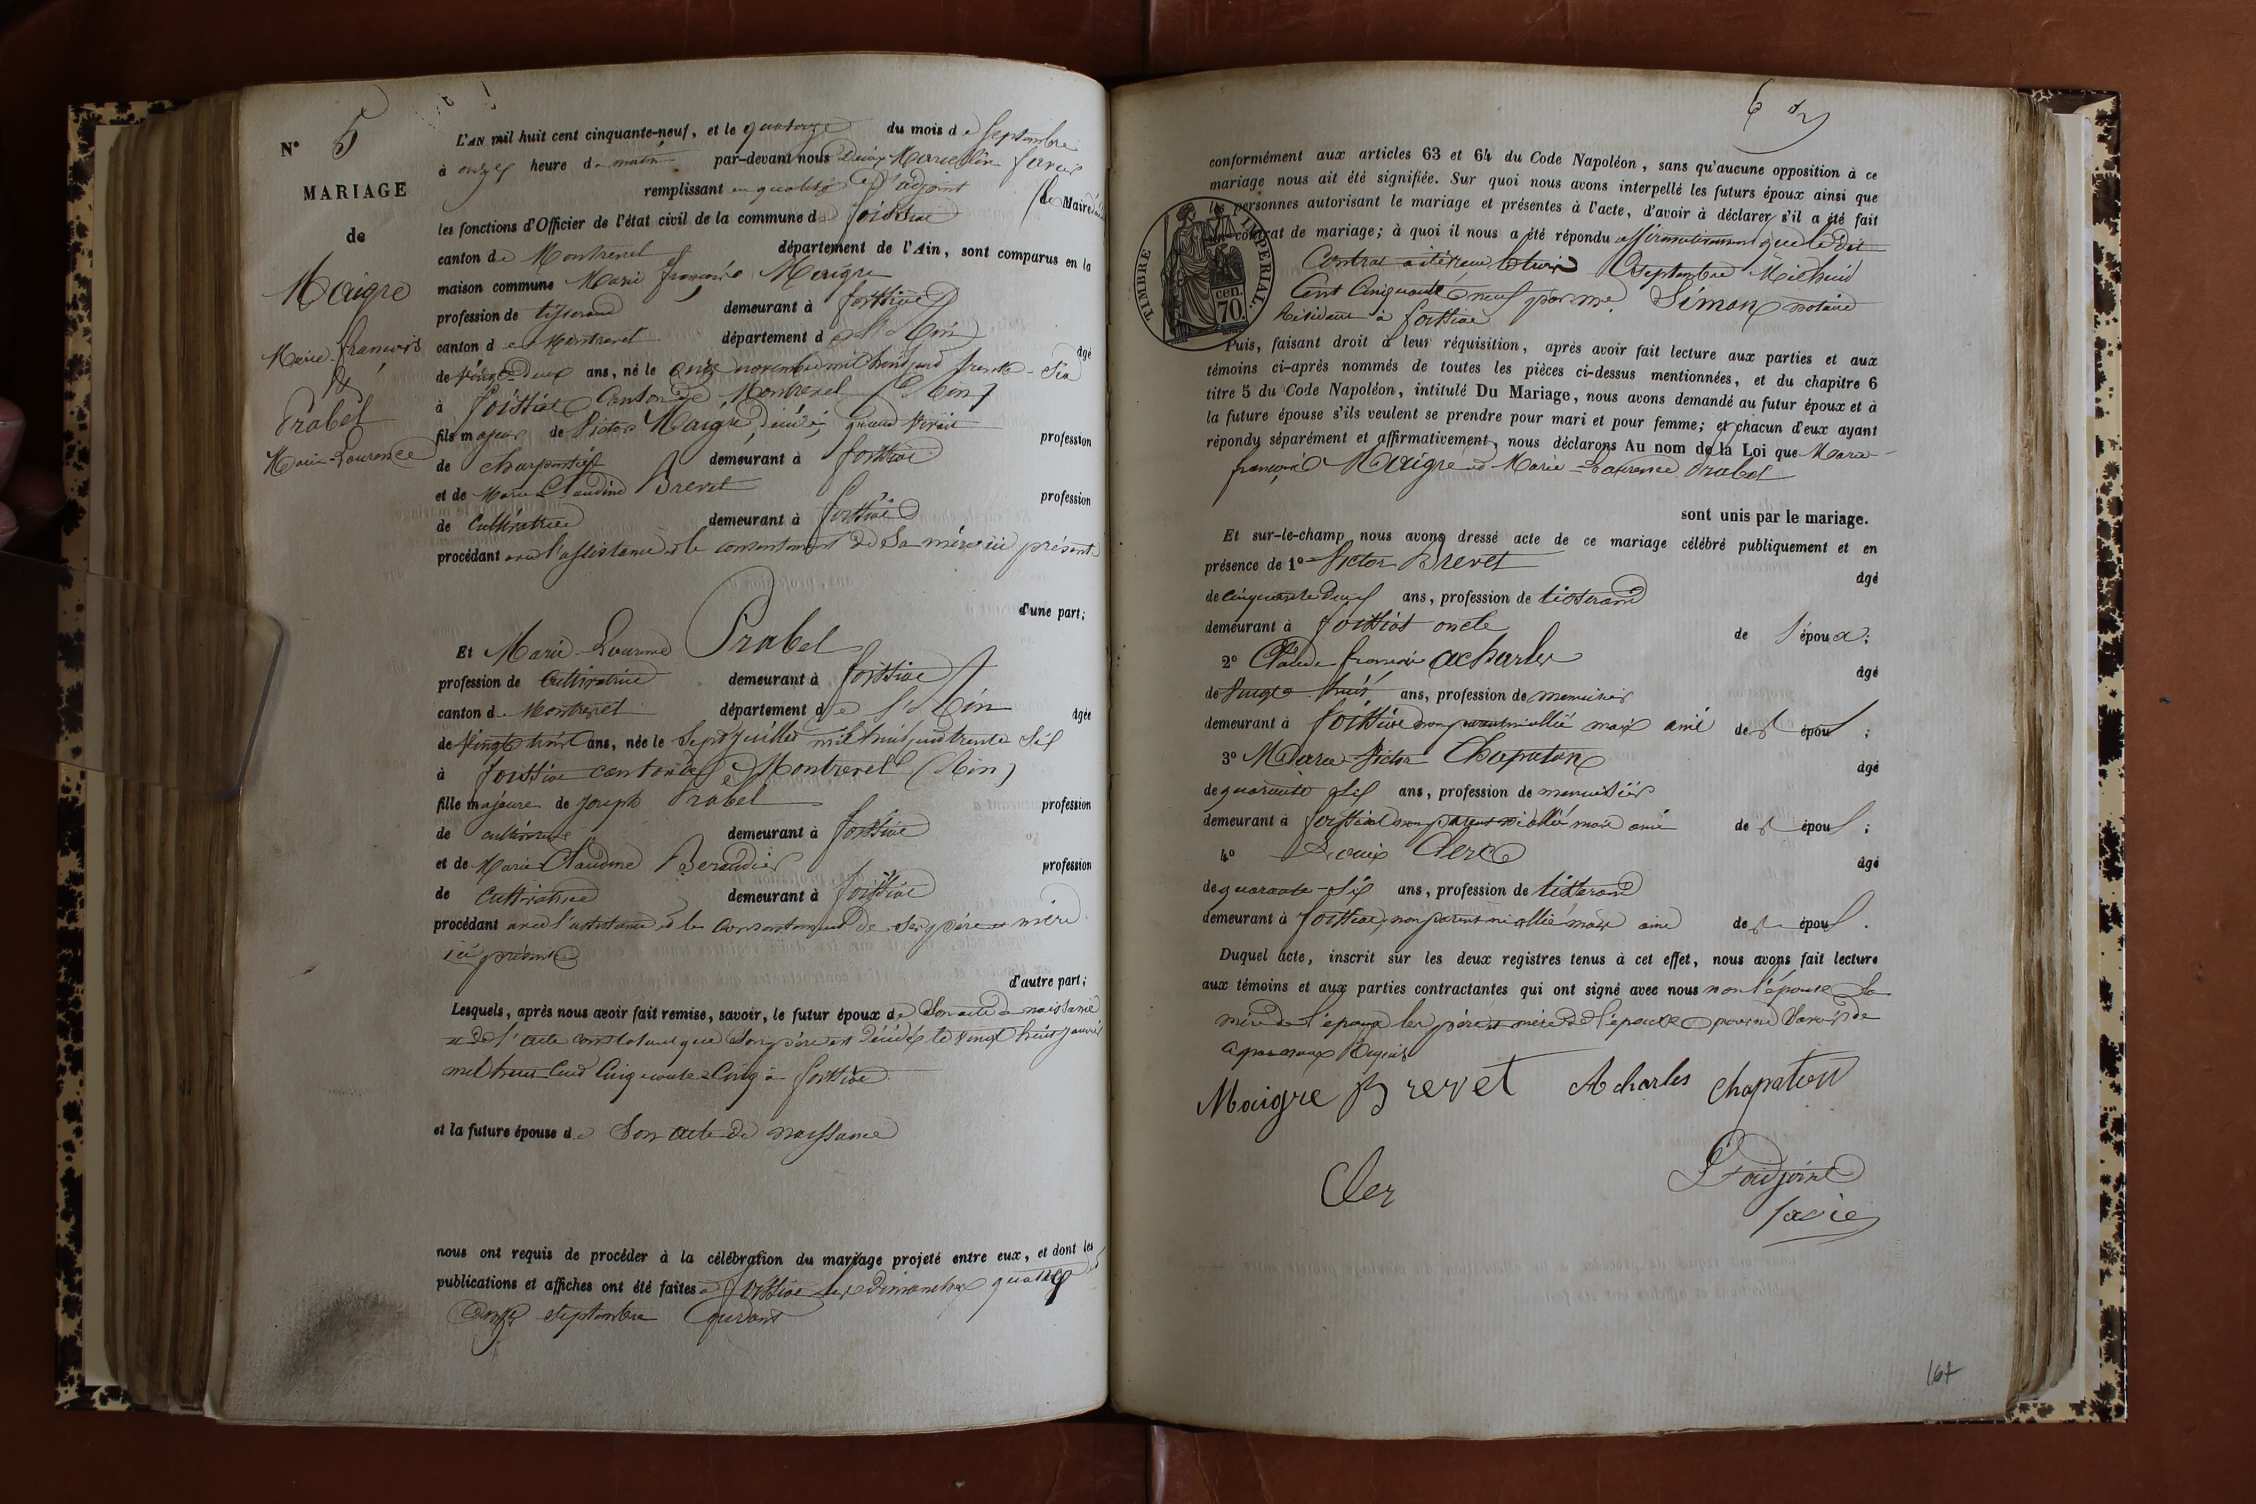 N° 5
MARIAGE
de
Maigre
Marie françois
&
Prabel
Marie-Lourence
L'AN mil huit cent cinquante-neuf, et le quatorze du mois de Septembre
à onze heure du matin par-devant nous
remplissant en qualité d'adjoint le Maire
les fonctions d'Officier de l'état civil de la commune de foissiat
canton de Montrevel département de l'Ain, sont comparus en la
maison commune Marie françois Maigre
profession de tisserand demeurant à foissiat
canton de Montrevel département de l'Ain âgé
de vingt-deux ans, né le onze novembre mil huit cent trente-six
à foissiat canton de Montrevel (Ain)
fils majeur de Victor Maigre, décédé, quand vivait profession
de charpentier demeurant à foissiat
et de Marie Claudine Brevet profession
de cultivatrice demeurant à foissiat
procédant avec l'assistance et le consentement de Sa mère ici présente
d'une part;
Et Marie-Lourence Prabel
profession de cultivatrice demeurant à foissiat
canton de Montrevel département de l'Ain âgée
de vingt trois ans, née le Sept juillet mil huit cent trente Six
à foissiat canton de Montrevel (Ain)
fille majeure de joseph Prabel profession
de cultivateur demeurant à foissiat
et de Marie Claudine Beraudier profession
de cultivatrice demeurant à foissiat
procédant avec l'assistance et le consentement de Ses père et mère
ici présents
d'autre part;
Lesquels, après nous avoir fait remise, savoir, le futur époux de Son acte de naissance
et de l'acte constatant que Son père est décédé le vingt huit janvier
mil huit cent Cinquante-Cinq à foissiat
et la future épouse de Son acte de naissance
nous ont requis de procéder à la célébration du mariage projeté entre eux, et dont les
publications et affiches ont été faites à foissiat les Dimanches quatre et
onze septembre
conformément aux articles 63 et 64 du Code Napoléon, sans qu'aucune opposition à ce
mariage nous ait été signifiée. Sur quoi nous avons interpellé les futurs époux ainsi que
les personnes autorisant le mariage et présentes à l'acte, d'avoir à déclarer s'il a été fait
un contrat de mariage; à quoi il nous a été répondu affirmativement que le dit
Contrat a été reçu le trois Septembre Mil huit
Cent Cinquante neuf par me Simon notaire
Résidant à foissiat
TIMBRE IMPERIAL.
70 cen.
Puis, faisant droit à leur réquisition, après avoir fait lecture aux parties et aux
témoins ci-après nommés de toutes les pièces ci-dessus mentionnées, et du chapitre 6
titre 5 du Code Napoléon, intitulé Du Mariage, nous avons demandé au futur époux et à
la future épouse s'ils veulent se prendre pour mari et pour femme; et chacun d'eux ayant
répondu séparément et affirmativement, nous déclarons Au nom de la Loi que Marie-
françois Maigre et Marie-Laurence Prabel
sont unis par le mariage.
Et sur-le-champ nous avons dressé acte de ce mariage célébré publiquement et en
présence de 1° Victor Brevet âgé
de cinquante deux ans, profession de tisserand
demeurant à foissiat oncle de l'époux;
2° Claude françois acharles âgé
de vingt-huit ans, profession de menuisier
demeurant à foissiat non parent ni allié mais ami des époux;
3° Marie-Victor Chapaton âgé
de quarante Six ans, profession de menuisier
demeurant à foissiat non parent ni allié mais ami des époux;
4° Louis Clerc âgé
de quarante-Six ans, profession de tisserand
demeurant à foissiat, non parent ni allié mais ami des époux.
Duquel acte, inscrit sur les deux registres tenus à cet effet, nous avons fait lecture
aux témoins et aux parties contractantes qui ont signé avec nous non l'épouse la
mère de l'époux les père et mère de l'épouse pour ne Savoir de
ce par nous Requis
Maigre Brevet Acharles Chapaton
Cler L'adjoint